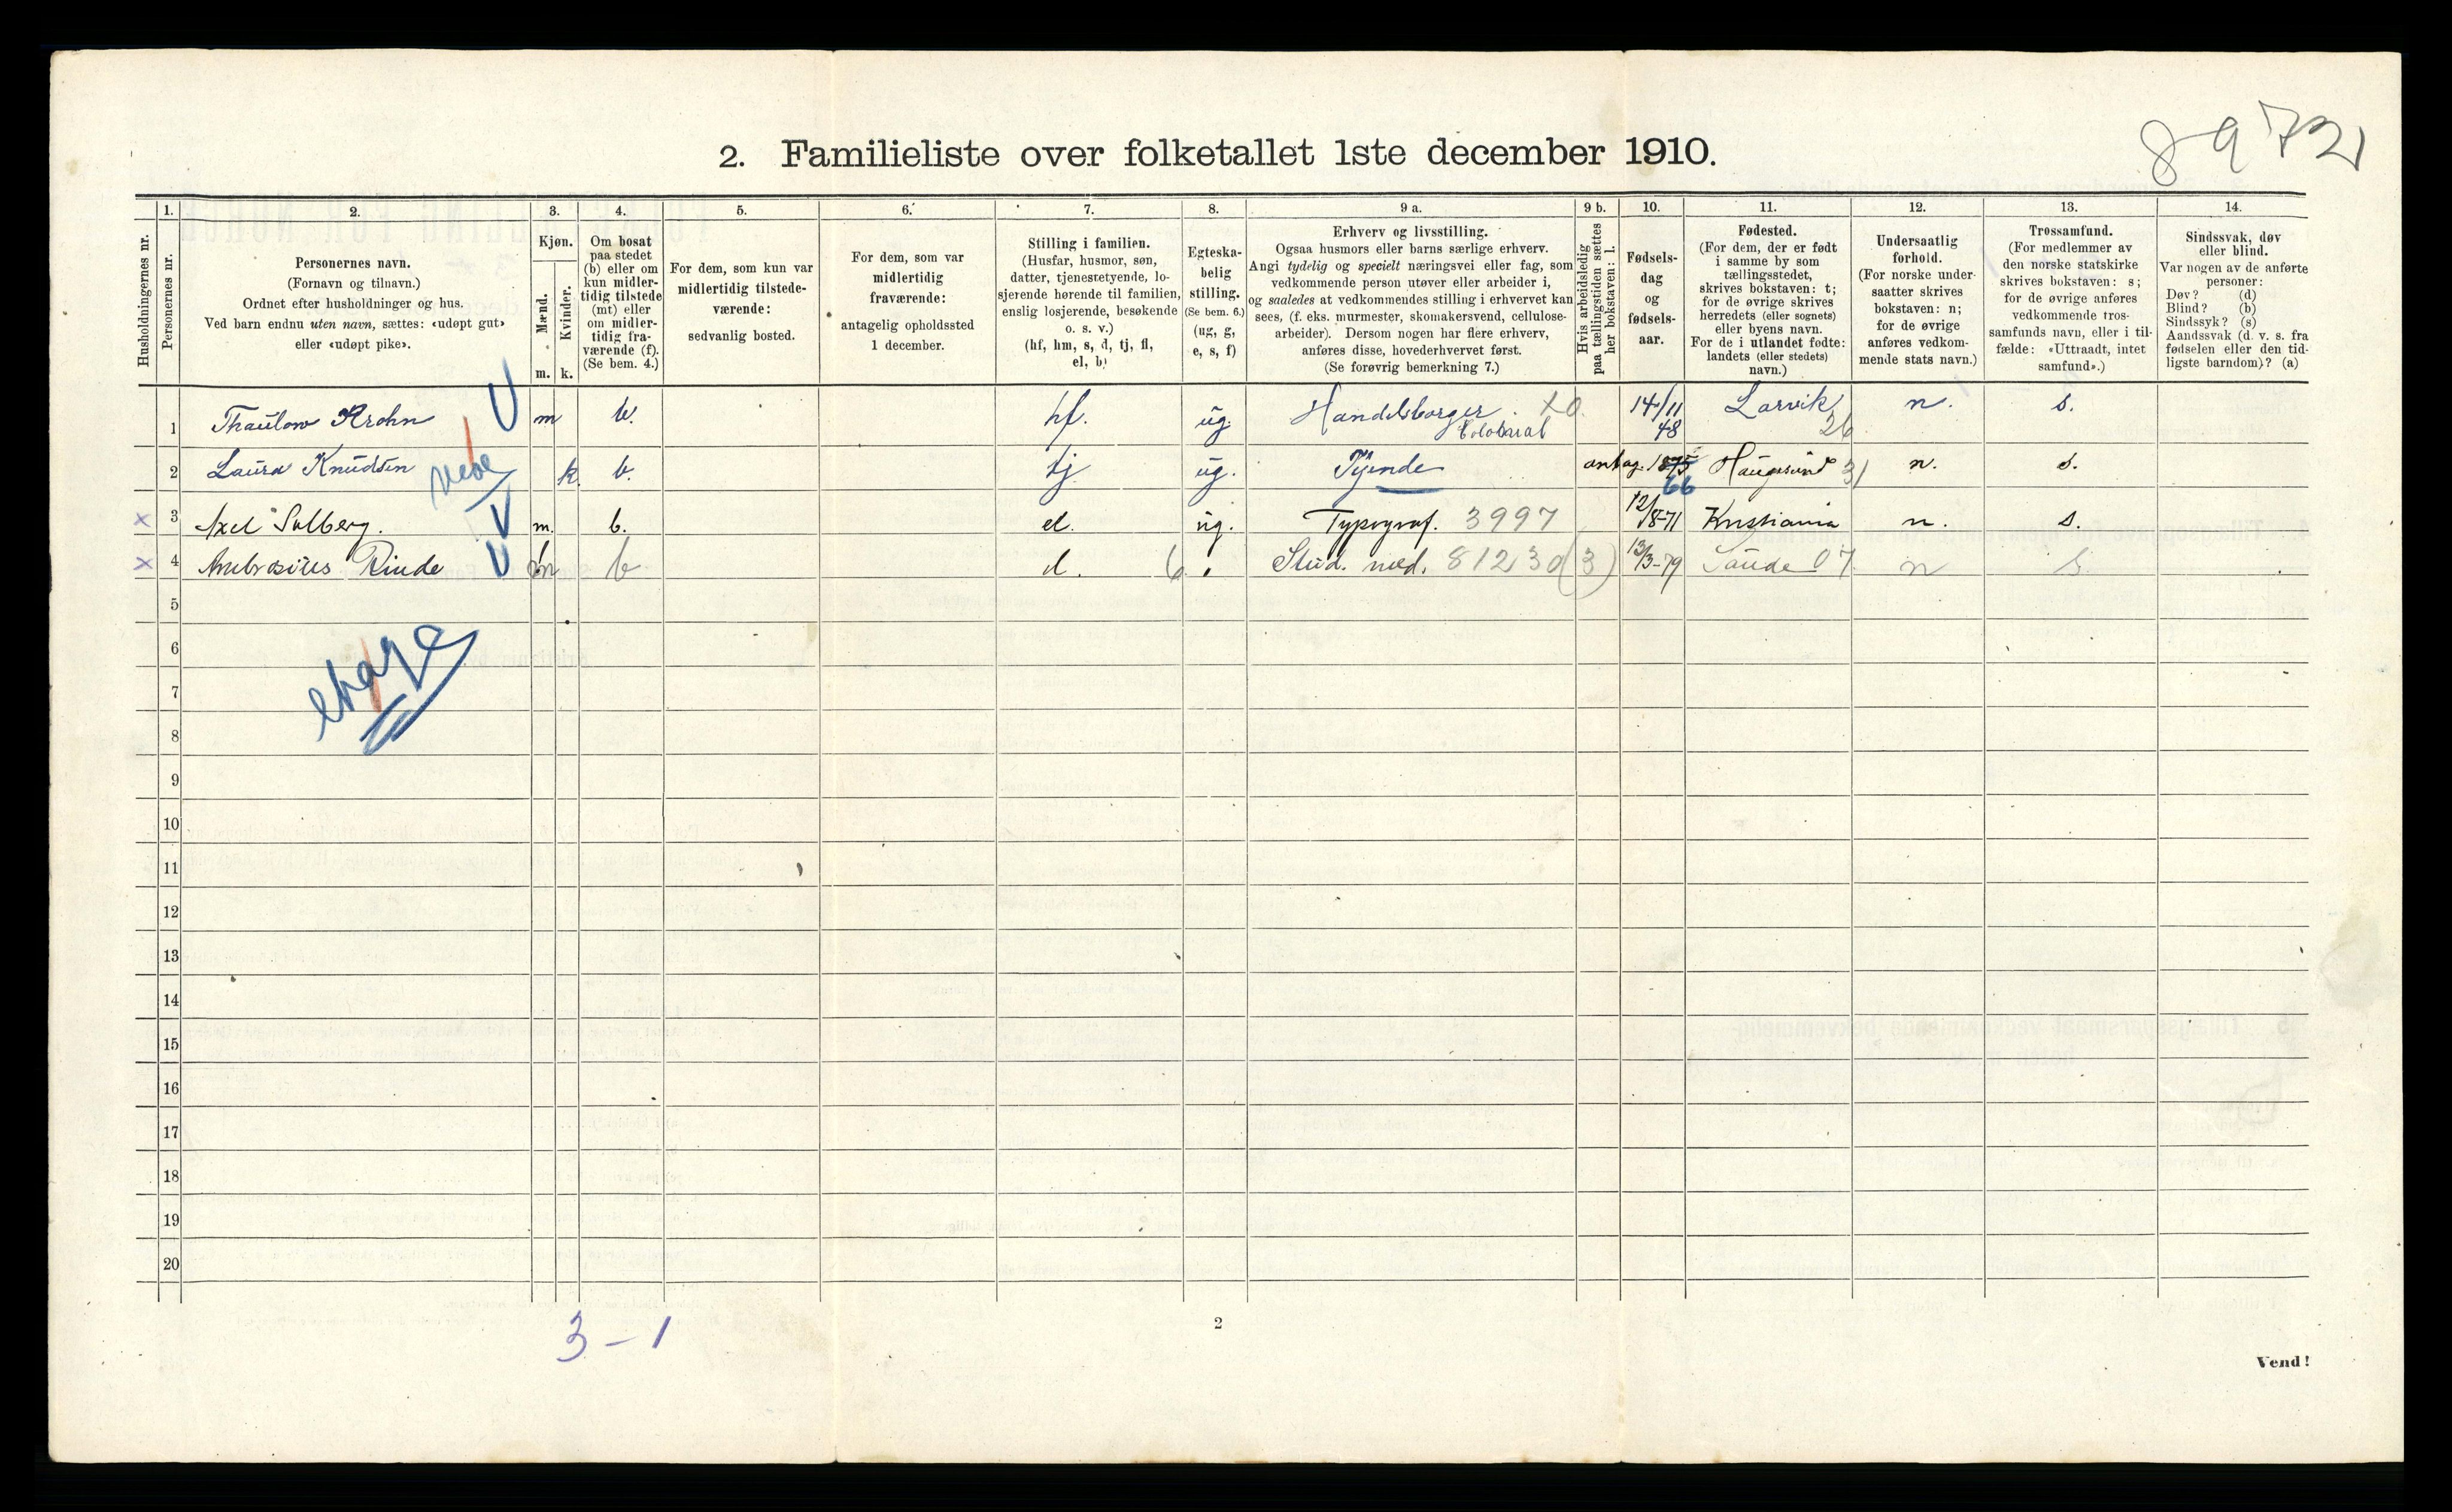 8972
2. Familieliste over folketallet 1ste december 1910.
Husholdningernes nr.
1. Personernes nr.
2. Personernes navn.
(Fornavn og tilnavn.)
Ordnet efter husholdninger og hus.
Ved barn endnu uten navn, sættes: «udøpt gut»
eller «udøpt pike».
3. Kjøn.
Mænd. Kvinder.
m. k.
4. Om bosat
paa stedet
(b) eller om
kun midler-
tidig tilstede
(mt) eller
om midler-
tidig fra-
værende (f).
(Se bem. 4.)
5. For dem, som kun var
midlertidig tilstede-
værende:
sedvanlig bosted.
6. For dem, som var
midlertidig
fraværende:
antagelig opholdssted
1 december.
7. Stilling i familien.
(Husfar, husmor, søn,
datter, tjenestetyende, lo-
sjerende hørende til familien,
enslig losjerende, besøkende
o. s. v.)
(hf, hm, s, d, tj, fl,
el, b)
8. Egteska-
belig
stilling.
(Se bem. 6.)
(ug, g,
e, s, f)
9 a. Erhverv og livsstilling.
Ogsaa husmors eller barns særlige erhverv.
Angi tydelig og specielt næringsvei eller fag, som
vedkommende person utøver eller arbeider i,
og saaledes at vedkommendes stilling i erhvervet kan
sees, (f. eks. murmester, skomakersvend, cellulose-
arbeider). Dersom nogen har flere erhverv,
anføres disse, hovederhvervet først.
(Se forøvrig bemerkning 7.)
9 b. Hvis arbeidsledig
paa tællingstiden sættes
her bokstaven: l.
10. Fødsels-
dag
og
fødsels-
aar.
11. Fødested.
(For dem, der er født
i samme by som
tællingsstedet,
skrives bokstaven: t;
for de øvrige skrives
herredets (eller sognets)
eller byens navn.
For de i utlandet fødte:
landets (eller stedets)
navn.)
12. Undersaatlig
forhold.
(For norske under-
saatter skrives
bokstaven: n;
for de øvrige
anføres vedkom-
mende stats navn.)
13. Trossamfund.
(For medlemmer av
den norske statskirke
skrives bokstaven: s;
for de øvrige anføres
vedkommende tros-
samfunds navn, eller i til-
fælde: «Uttraadt, intet
samfund».)
14. Sindssvak, døv
eller blind.
Var nogen av de anførte
personer:
Døv? (d)
Blind? (b)
Sindssyk? (s)
Aandssvak (d. v. s. fra
fødselen eller den tid-
ligste barndom)? (a)
1 Thaulow Krohn m b. hf. ug. Handelsborger 14/11 48 Larvik 26 n. s.
2 Laura Knudsen k b. tj ug. Tjende antag. 1875 66 Haugesund 31 n. s.
x 3 Axel Solberg. m. b. el. ug. Typograf. 3997 12/8-71 Kristiania n. s.
x 4 Ambrosius Rinde m b el. Stud. med. 81230 (3) 13/3-79 07 n s.
5
6
etage
7
8
9
10
11
12
13
14
15
16
17
18
19
20
3-1
2
Vend!